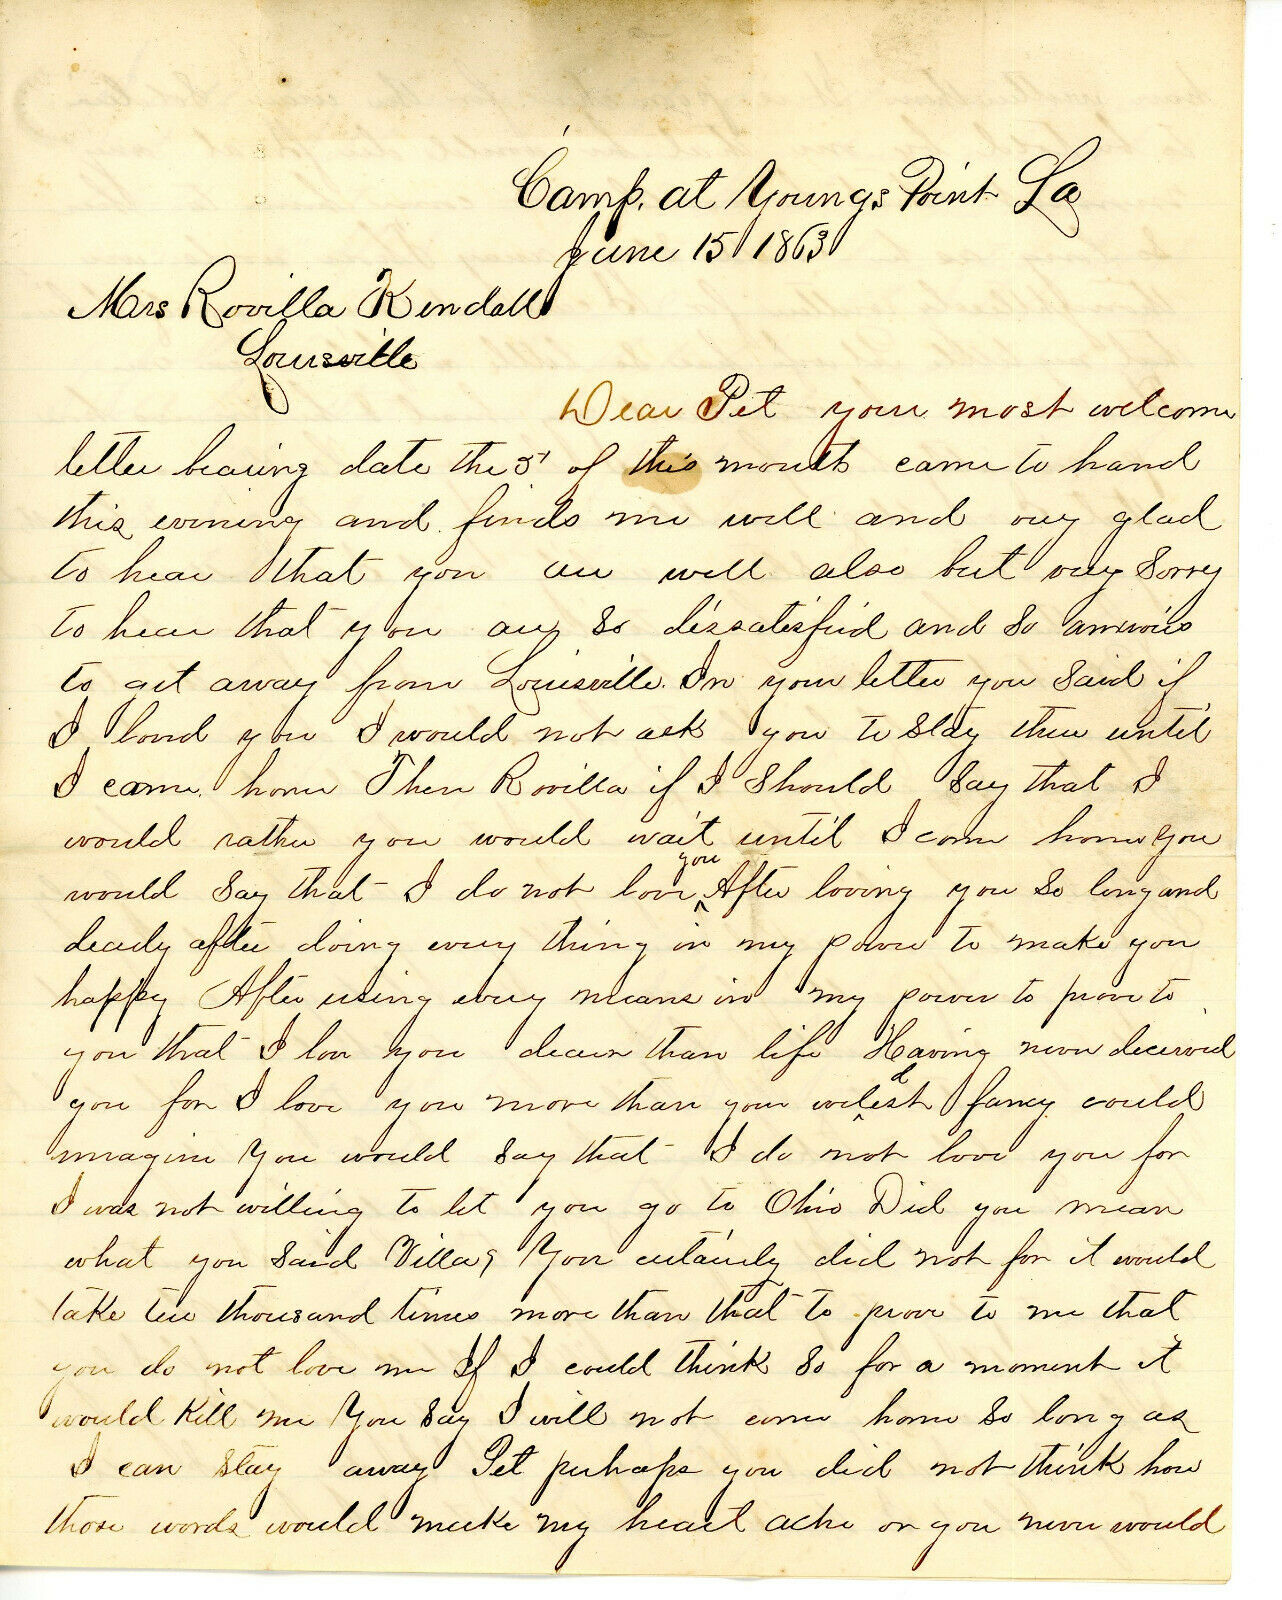 Camp. at Youngs Point La
June 15 1863
Mrs Rovilla Kendall
Louisville
Dear Pet your most welcome
letter bearing date the 5th of this month came to hand
this evening and finds me well and very glad
to hear that you are well also but very Sorry
to hear that you are so dissatisfied and so anxious
to get away from Louisville. In your letter you Said if
I loved you I would not ask you to Stay there until
I came home Then Rovilla if I Should Say that I
would rather you would wait until I come home you
would Say that I do not love you After loving you So long and
dearly after doing every thing in my power to make you
happy After using every means in my power to prove to
you that I love you dearer than life Having never deceived
you for I love you more than your wildest fancy could
imagine You would Say that I do not love you for
I was not willing to let you go to Ohio Did you mean
what you Said Villa? You certainly did not for it would
take ten thousand times more than that to prove to me that
you do not love me If I could think So for a moment it
would Kill me You Say I will not come home So long as
I can Stay away Pet perhaps you did not think how
those words would make my heart ache or you never would